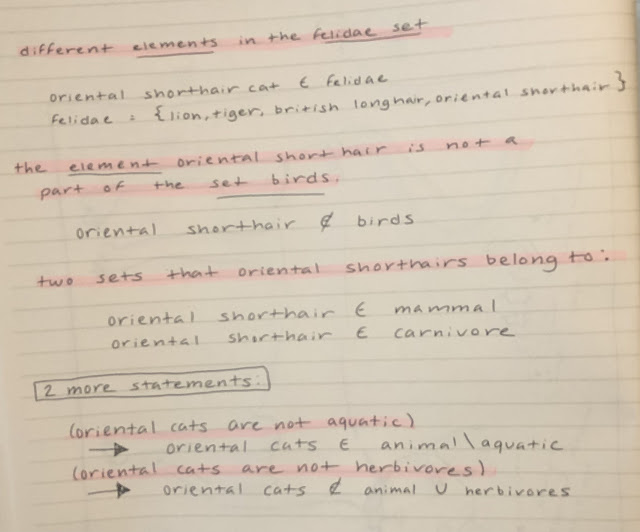 different elements in the felidae set
oriental shorthair cat ∈ felidae
felidae = {lion, tiger, british longhair, oriental shorthair}
the element oriental shorthair is not a
part of the set birds.
oriental shorthair ∉ birds
two sets that oriental shorthairs belong to:
oriental shorthair ∈ mammal
oriental shorthair ∈ carnivore
2 more statements:
(oriental cats are not aquatic)
→ oriental cats ∈ animal \ aquatic
(oriental cats are not herbivores)
→ oriental cats ∉ animal ∪ herbivores